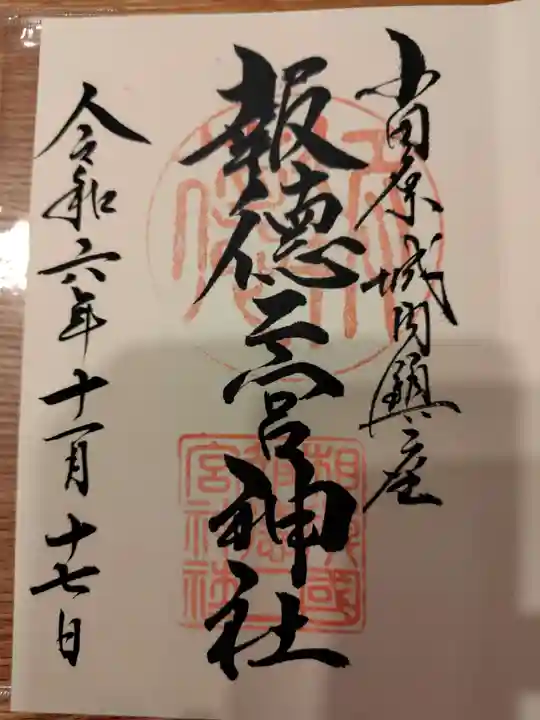 小田原城内鎮座
報徳二宮神社
令和六年十一月十七日
相模國
報徳二
宮神社